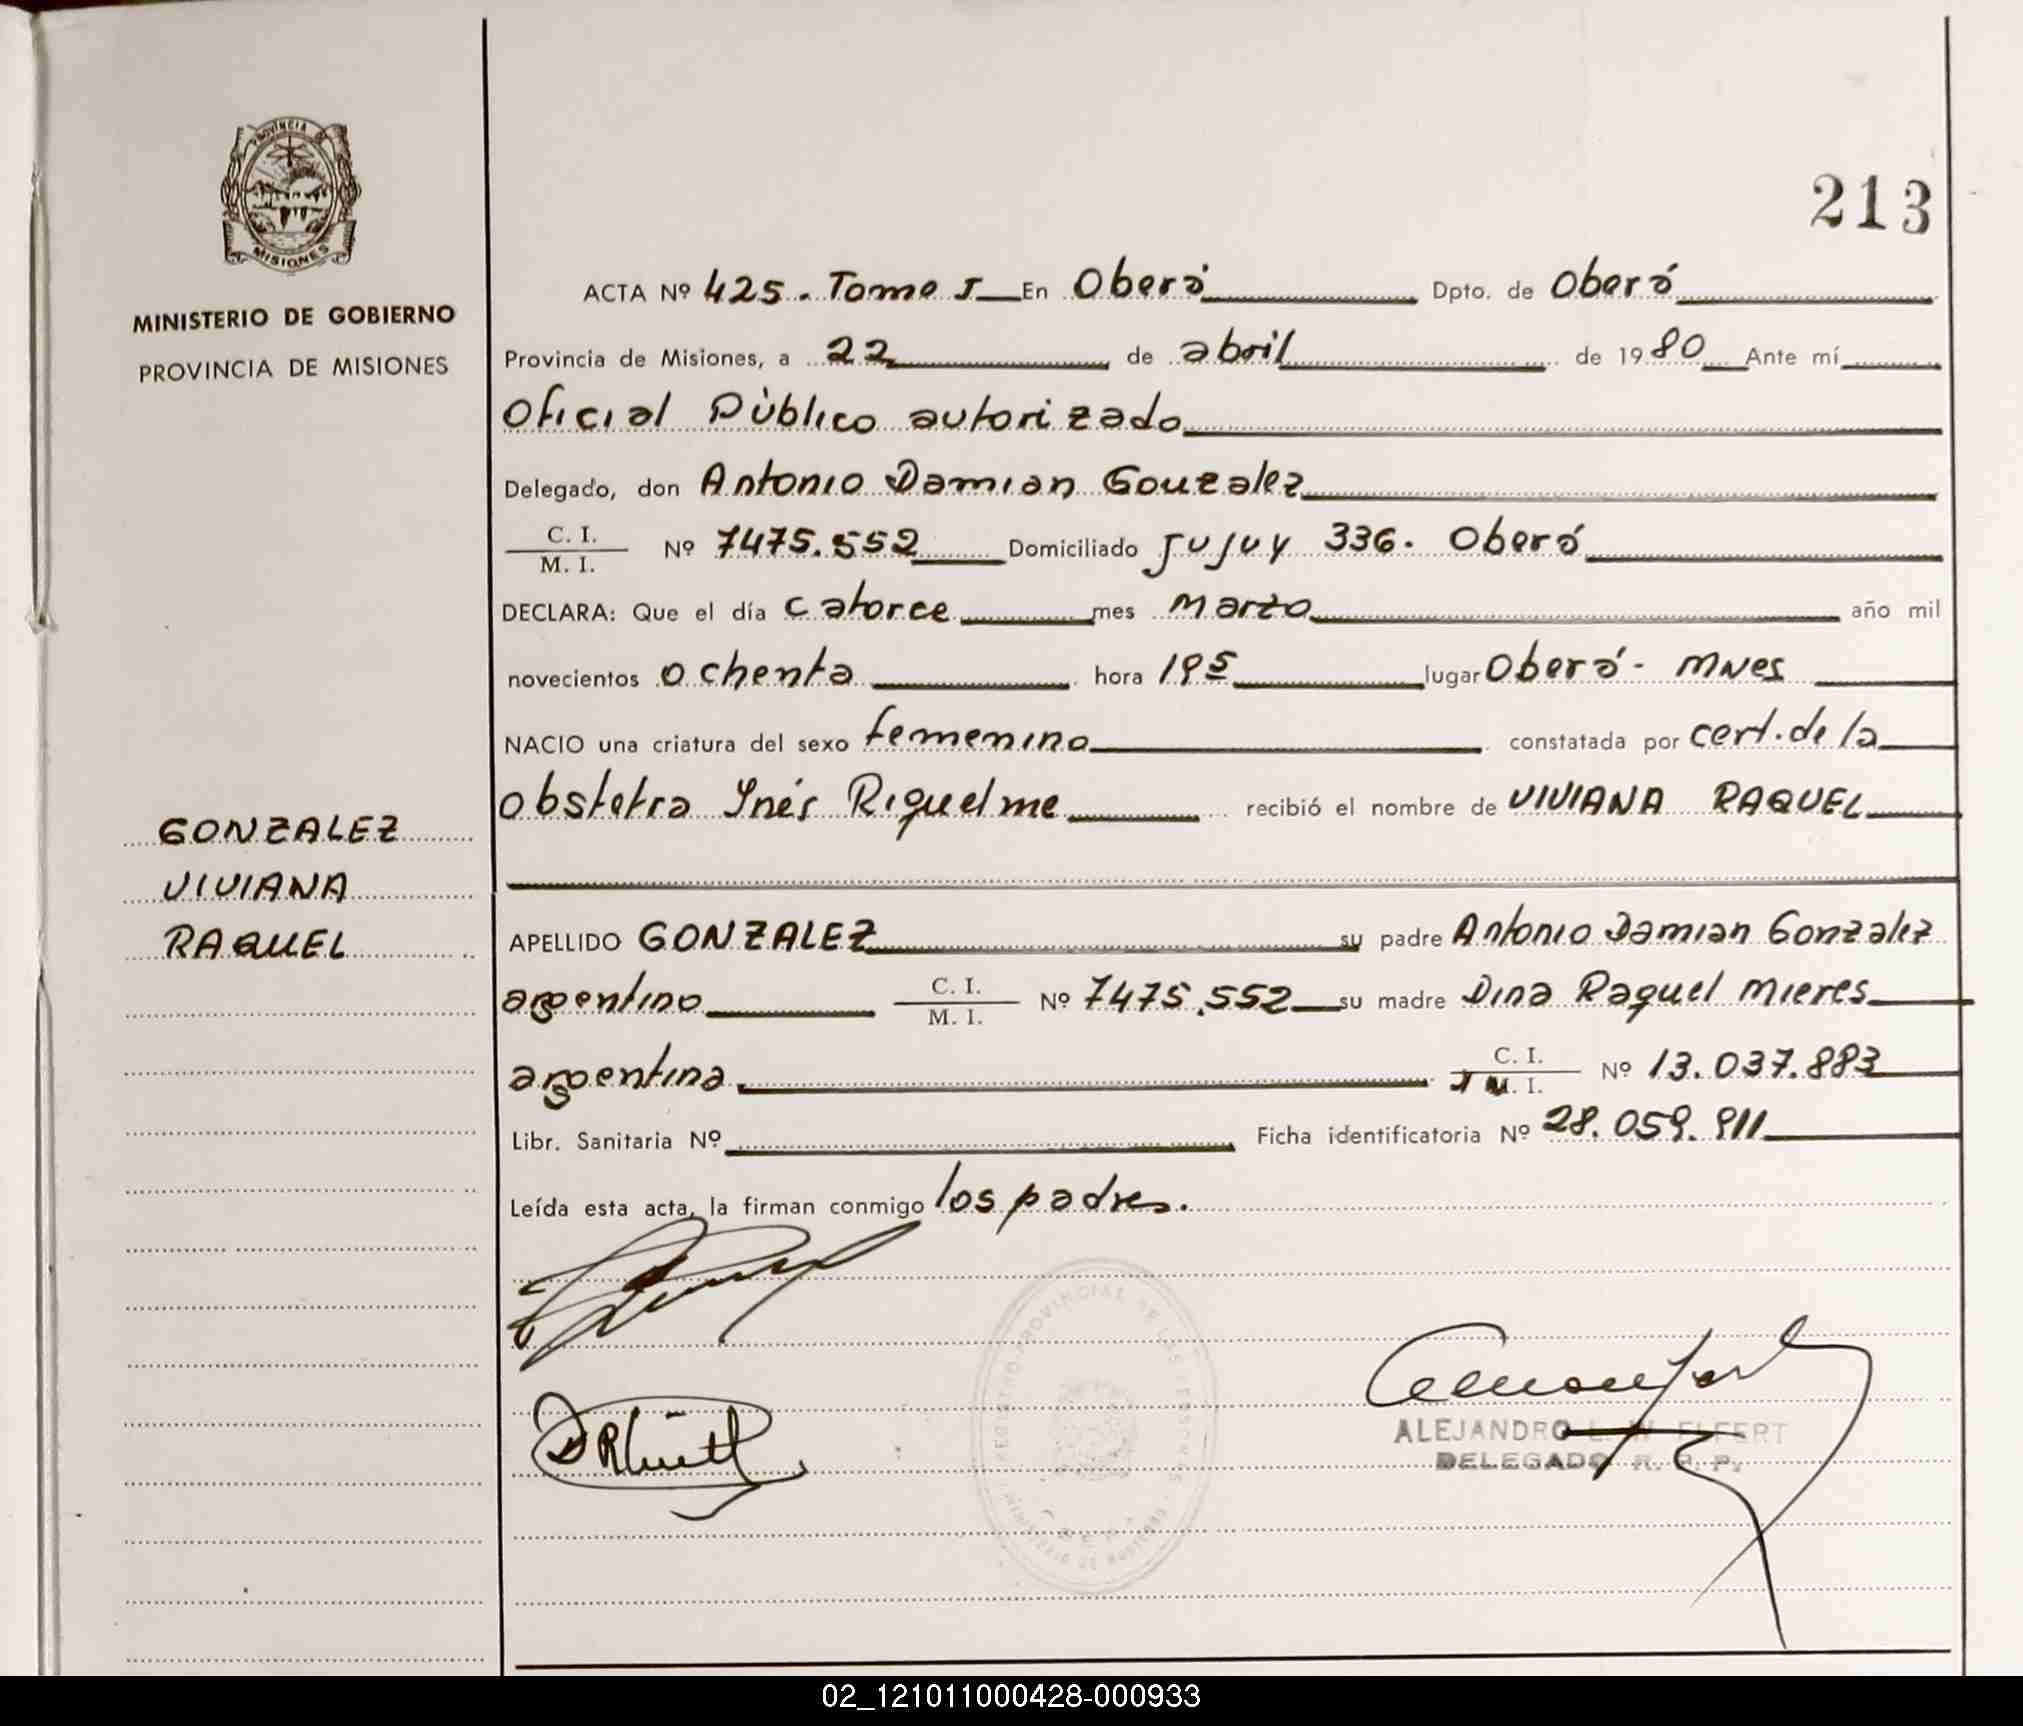 PROVINCIA DE
MISIONES
MINISTERIO DE GOBIERNO
PROVINCIA DE MISIONES
213
ACTA Nº 425. Tomo I En Oberá Dpto. de Oberá
Provincia de Misiones, a 22 de abril de 1980 Ante mí
Oficial Público autorizado
Delegado, don Antonio Damian Gonzalez
C. I.
M. I.
Nº 7475.552 Domiciliado Jujuy 336. Oberá
DECLARA: Que el día catorce mes marzo año mil
novecientos ochenta hora 195 lugar Oberá - Mnes
NACIO una criatura del sexo femenino constatada por cert. de la
obstetra Inés Riquelme recibió el nombre de VIVIANA RAQUEL
GONZALEZ
VIVIANA
RAQUEL
APELLIDO GONZALEZ su padre Antonio Damian Gonzalez
argentino C. I.
M. I.
Nº 7475.552 su madre Dina Raquel Mieres
argentina. C. I.
M. I.
Nº 13.037.883
Libr. Sanitaria Nº Ficha identificatoria Nº 28.059.911
Leída esta acta, la firman conmigo los padres.
REGISTRO PROVINCIAL DE LAS PERSONAS
MINISTERIO DE
ALEJANDRO L. W. ELFERT
DELEGADO R. P. P.
02_121011000428-000933